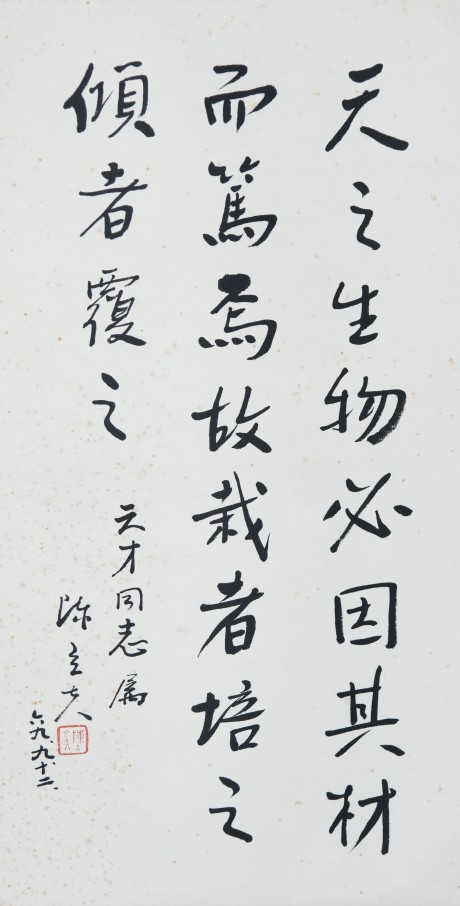 天之生物必因其材
而篤焉故栽者培之
傾者覆之
云才同志属
陈立夫
六九、九、十二、